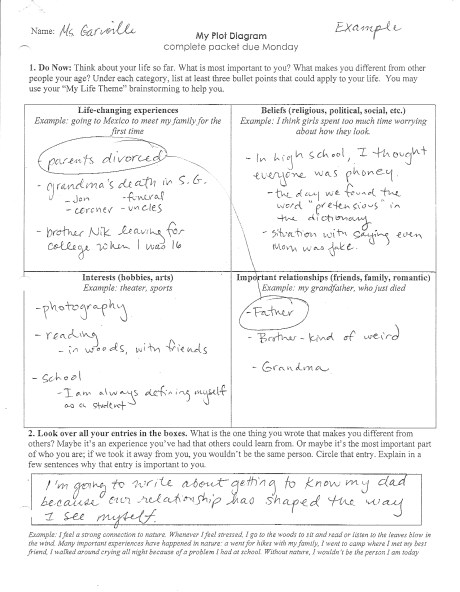 Name: Ms. Garville
Example
My Plot Diagram
complete packet due Monday
1. Do Now: Think about your life so far. What is most important to you? What makes you different from other
people your age? Under each category, list at least three bullet points that could apply to your life. You may
use your "My Life Theme" brainstorming to help you.
Life-changing experiences
Example: going to Mexico to meet my family for the
first time
parents divorced
- grandma's death in S.G.
- Jon - funeral
- coroner - uncles
- brother Nik leaving for
college when I was 16
Beliefs (religious, political, social, etc.)
Example: I think girls spent too much time worrying
about how they look.
- In high school, I thought
everyone was phoney.
- the day we found the
word "pretensious" in
the dictionary
- situation with saying even
Mom was fake.
Interests (hobbies, arts)
Example: theater, sports
- photography
- reading
- in woods, with friends
- School
- I am always defining myself
as a student
Important relationships (friends, family, romantic)
Example: my grandfather, who just died
- Father
- Brother - kind of weird
- Grandma
2. Look over all your entries in the boxes. What is the one thing you wrote that makes you different from
others? Maybe it's an experience you've had that others could learn from. Or maybe it's the most important part
of who you are; if we took it away from you, you wouldn't be the same person. Circle that entry. Explain in a
few sentences why that entry is important to you.
I'm going to write about getting to know my dad
because our relationship has shaped the way
I see myself.
Example: I feel a strong connection to nature. Whenever I feel stressed, I go to the woods to sit and read or listen to the leaves blow in
the wind. Many important experiences have happened in nature: a went for hikes with my family, I went to camp where I met my best
friend, I walked around crying all night because of a problem I had at school. Without nature, I wouldn't be the person I am today